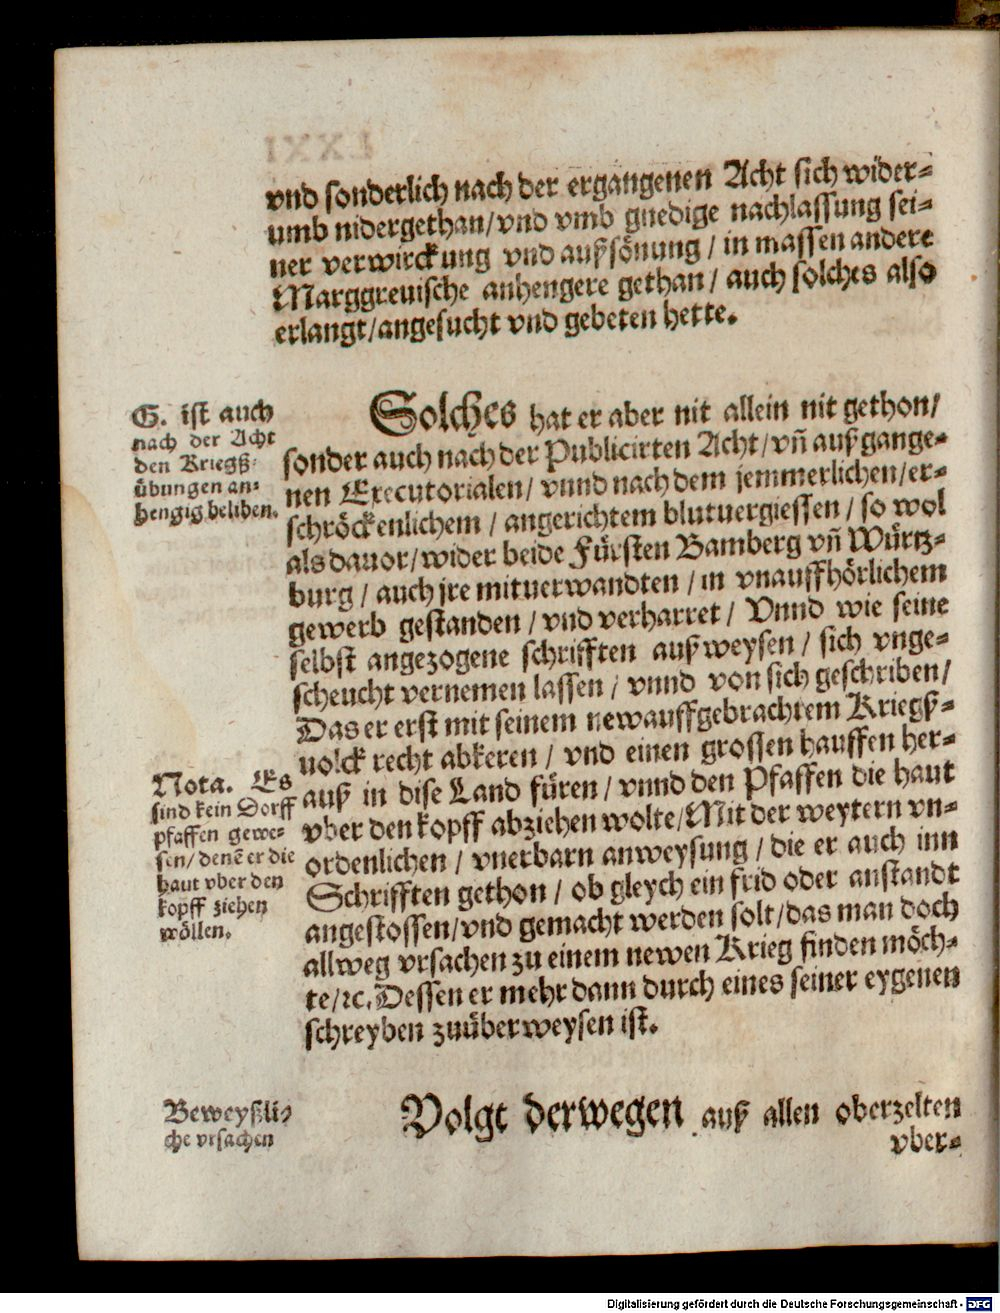 vnd sonderlich nach der ergangenen Acht sich wider⸗
umb nidergethan/vnd vmb gnedige nachlassung sei⸗
ner verwirckung vnd außsönung / in massen andere
Marggreuische anhengere gethan / auch solches also
erlangt/angesucht vnd gebeten hette.
G. ist auch
nach der Acht
den Kriegß⸗
übungen an⸗
hengig beliben.
Solches hat er aber nit allein nit gethon/
sonder auch nach der Publicirten Acht/vn̄ außgange⸗
nen Executorialen/ vnnd nach dem jemmerlichen/er⸗
schröckenlichem / angerichtem blutuergiessen / so wol
als dauor/wider beide Fürsten Bamberg vn̄ Würtz⸗
burg / auch jre mituerwandten / in vnauffhörlichem
gewerb gestanden / vnd verharret / Vnnd wie seine
selbst angezogene schrifften außweysen / sich vnge⸗
scheucht vernemen lassen / vnnd von sich geschriben/
Das er erst mit seinem newauffgebrachtem Kriegß⸗
uolck recht abkeren / vnd einen grossen hauffen her⸗
auß in dise Land füren / vnnd den Pfaffen die haut
vber den kopff abziehen wolte/Mit der weytern vn⸗
ordenlichen / vnerbarn anweysung / die er auch inn
Schrifften gethon / ob gleych ein frid oder anstandt
angestossen/vnd gemacht werden solt/das man doch
allweg vrsachen zu einem newen Krieg finden möch⸗
te/ꝛc. Dessen er mehr dann durch eines seiner eygenen
schreyben zuüberweysen ist.
Nota. Es
sind kein Dorff
pfaffen gewe⸗
sen/denē er die
haut vber den
kopff ziehen
wöllen.
Beweyßli⸗
che vrsachen
Volgt derwegen auß allen oberzelten
vber⸗
Digitalisierung gefördert durch die Deutsche Forschungsgemeinschaft - DFG